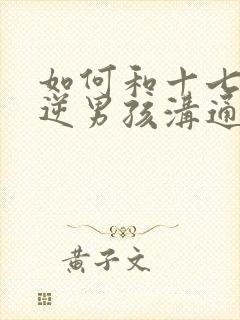 如何和十七
逆男孩溝通
黃子文